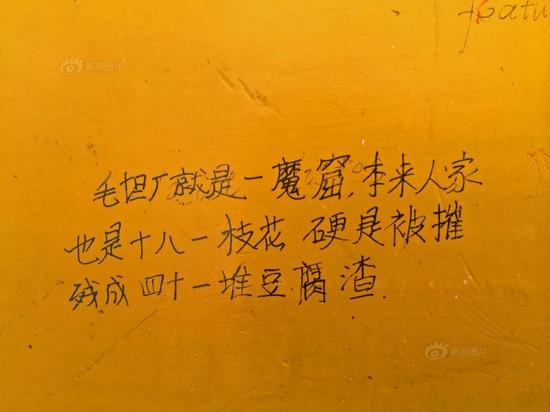 featu
新浪图片
毛坦厂就是一魔窟,本来人家
也是十八一枝花 硬是被摧
残成四十一堆豆腐渣.
新浪图片